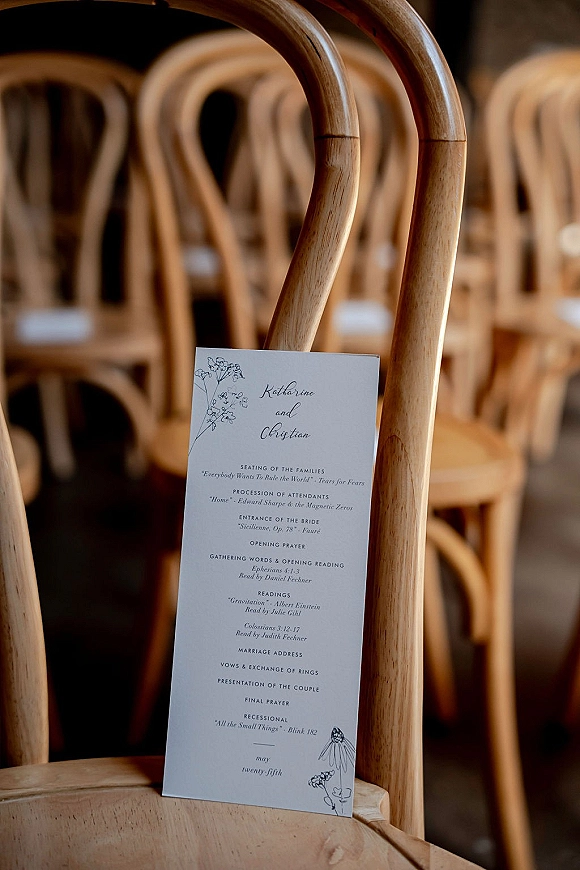 Katharine
and
Christian
SEATING OF THE FAMILIES
"Everybody Wants To Rule the World" - Tears for Fears
PROCESSION OF ATTENDANTS
"Home" - Edward Sharpe & the Magnetic Zeros
ENTRANCE OF THE BRIDE
"Sicilienne, Op. 78" - Fauré
OPENING PRAYER
GATHERING WORDS & OPENING READING
Ephesians 4:1-3
Read by Daniel Fechner
READINGS
"Gravitation" - Albert Einstein
Read by Julie Gihl
Colossians 3:12-17
Read by Judith Fechner
MARRIAGE ADDRESS
VOWS & EXCHANGE OF RINGS
PRESENTATION OF THE COUPLE
FINAL PRAYER
RECESSIONAL
"All the Small Things" - Blink 182
may
twenty-fifth